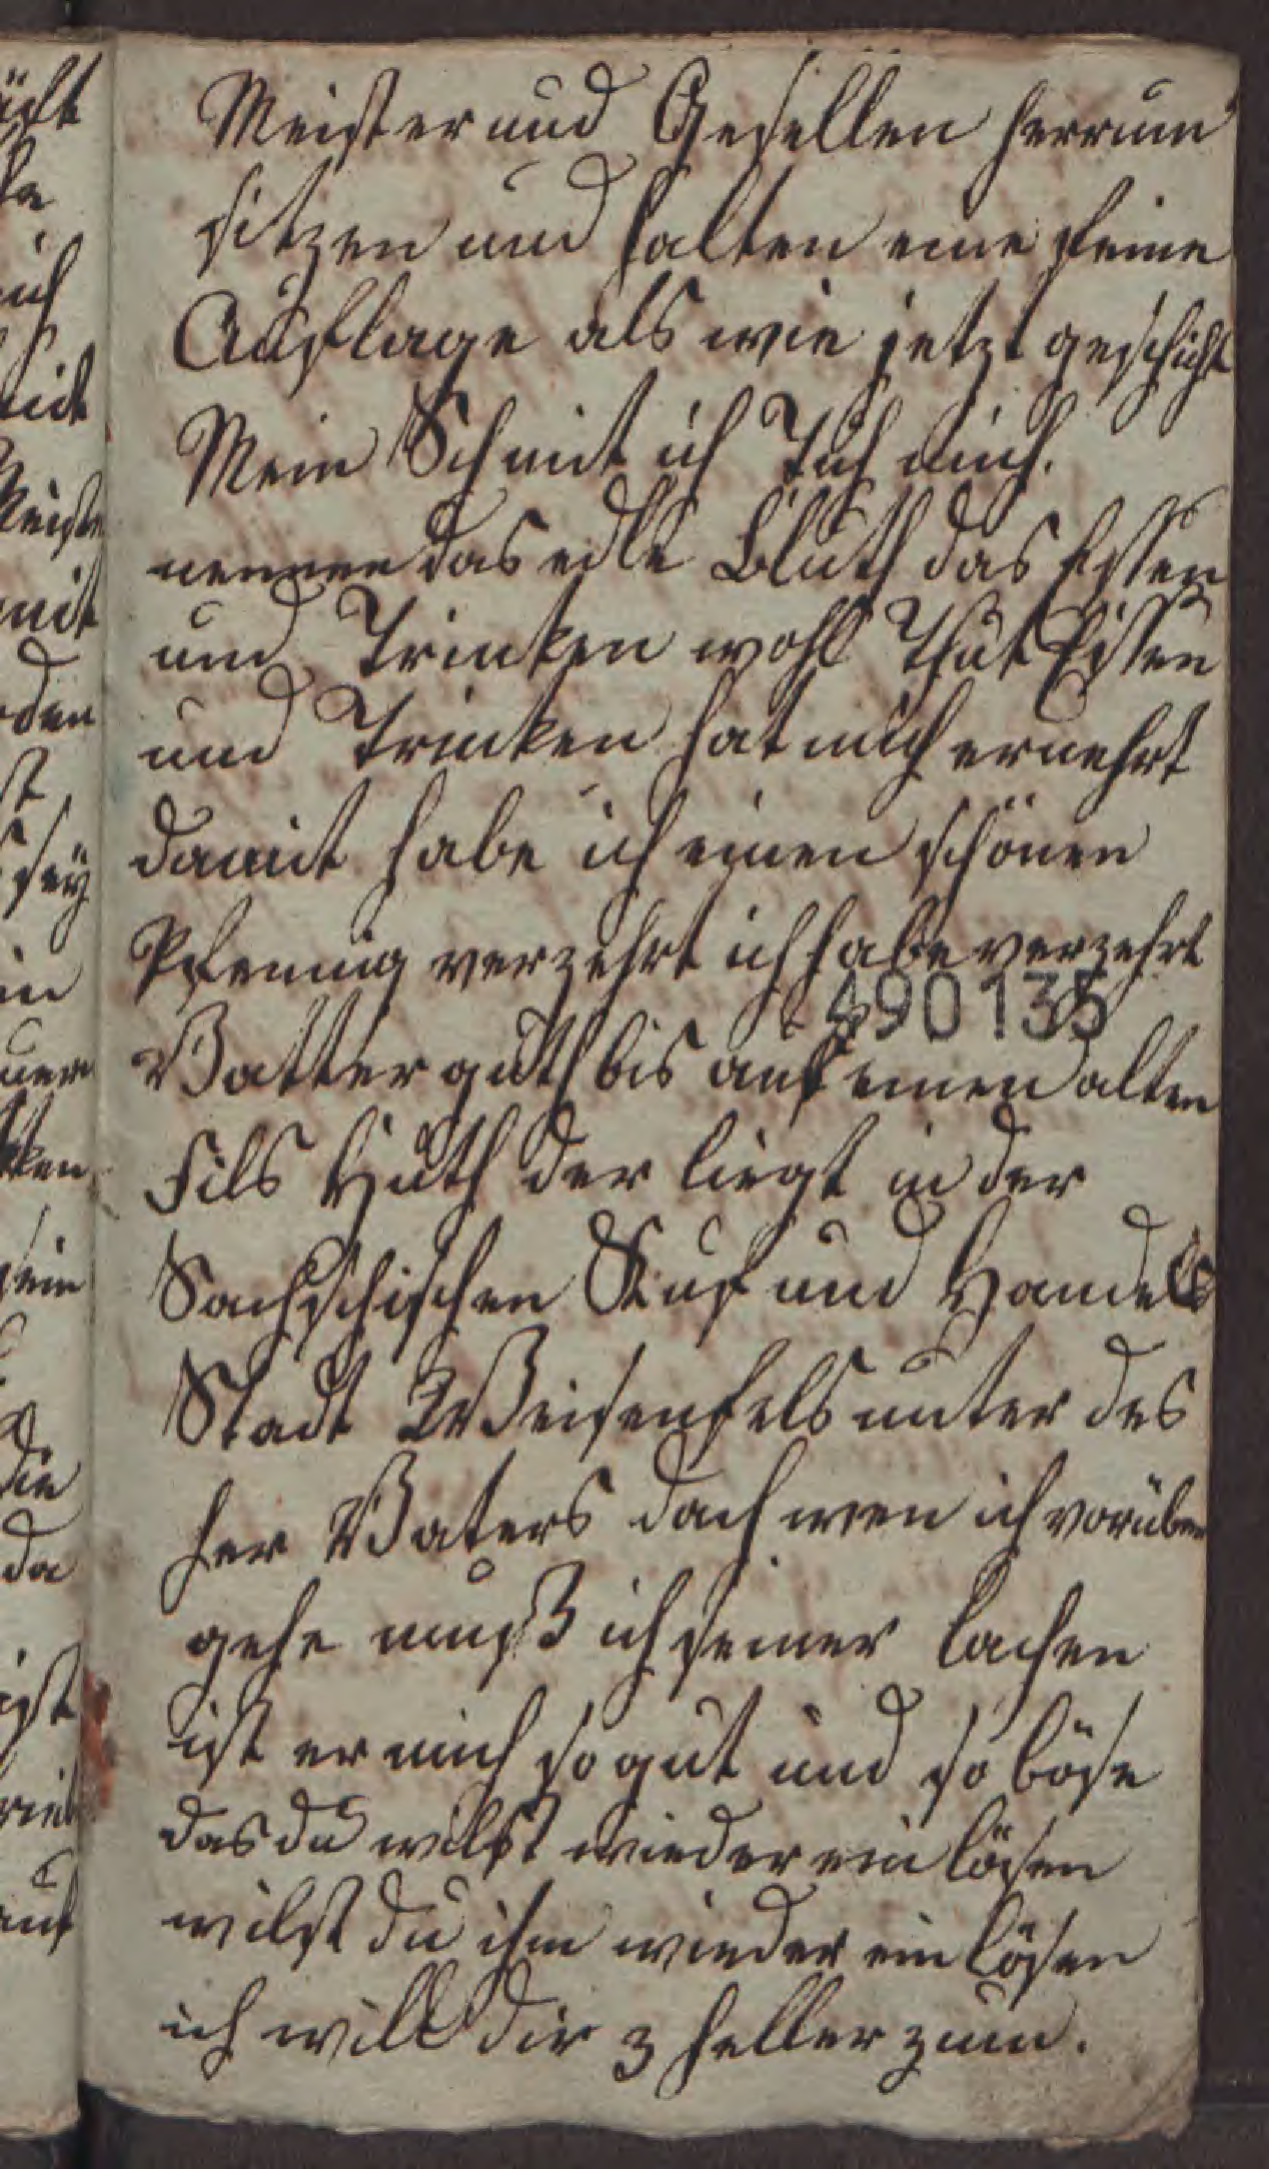 Meister und Gesellen herrum
sitzen und halten eine feine
Auflage als wie jetzt geschicht
Mein Schmit ich Tuh mich.
nennen das edle Bluth das Essen
und Trinken wohl Thut Essen
und Trinken hat mich ernehrt
damit habe ich einen schönen
Pfennig verzehrt ich habe verzehrt
490135
Vatter guth bis auf einen alten
Fils Huth der liegt in der
Sachschischen und Handels
Stadt Weisenfels unter des
her Vaters dach wen ich vorüber
gehe muß ich seiner lachen
ist er mich so gut und so böse
das du wilst wieder ein lösen
wilst du ihm wieder ein lösen
ich will dir 3 heller zum.